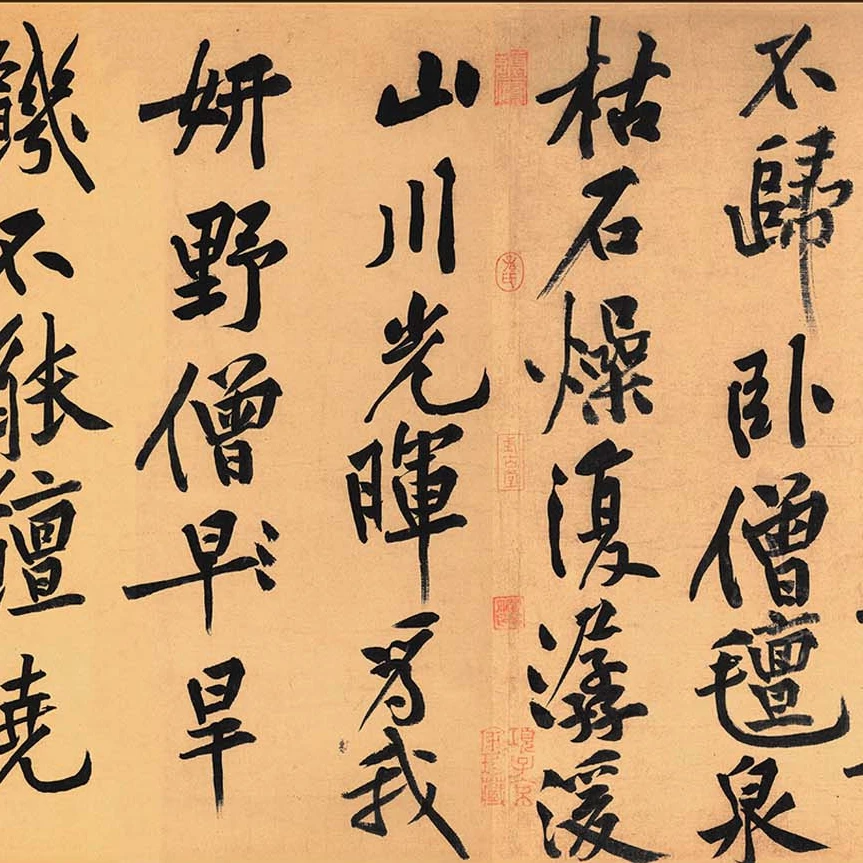 不歸臥僧氈泉
枯石燥復潺湲
山川光暉爲我
妍野僧早旱
饑不能饘曉